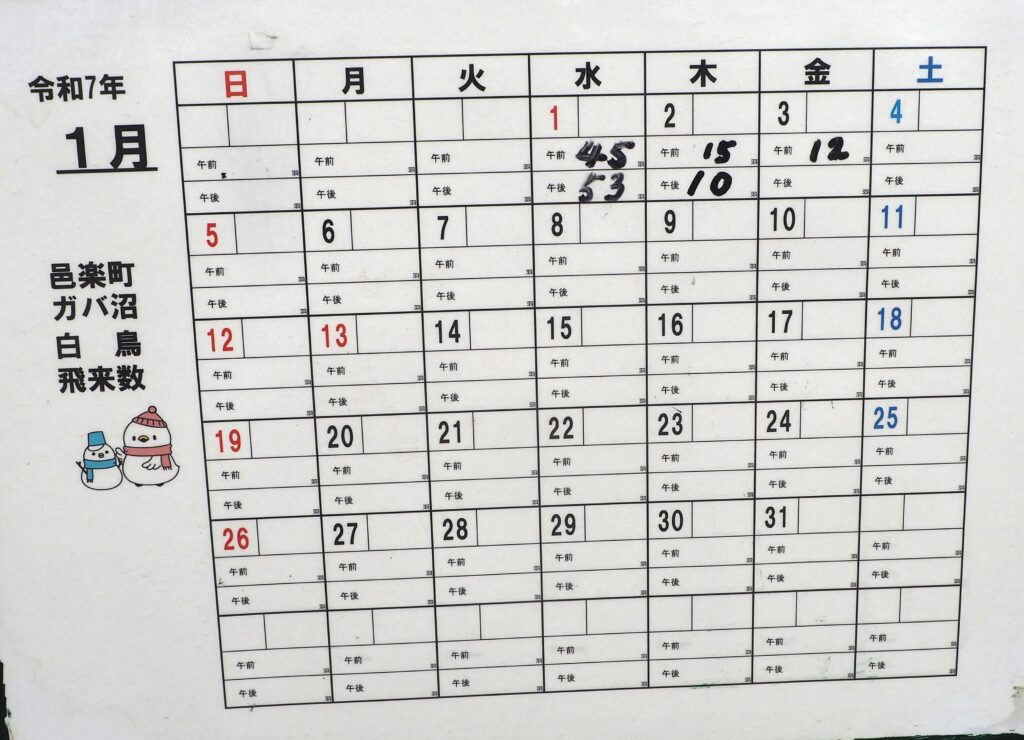 令和7年
1月
邑楽町
ガバ沼
白 鳥
飛来数
日 月 火 水 木 金 土
1 2 3 4
午前 羽 午前 羽 午前 羽 午前 45 羽 午前 15 羽 午前 12 羽 午前 羽
午後 羽 午後 羽 午後 羽 午後 53 羽 午後 10 羽 午後 羽 午後 羽
5 6 7 8 9 10 11
午前 羽 午前 羽 午前 羽 午前 羽 午前 羽 午前 羽 午前 羽
午後 羽 午後 羽 午後 羽 午後 羽 午後 羽 午後 羽 午後 羽
12 13 14 15 16 17 18
午前 羽 午前 羽 午前 羽 午前 羽 午前 羽 午前 羽 午前 羽
午後 羽 午後 羽 午後 羽 午後 羽 午後 羽 午後 羽 午後 羽
19 20 21 22 23 24 25
午前 羽 午前 羽 午前 羽 午前 羽 午前 羽 午前 羽 午前 羽
午後 羽 午後 羽 午後 羽 午後 羽 午後 羽 午後 羽 午後 羽
26 27 28 29 30 31
午前 羽 午前 羽 午前 羽 午前 羽 午前 羽 午前 羽 午前 羽
午後 羽 午後 羽 午後 羽 午後 羽 午後 羽 午後 羽 午後 羽
午前 羽 午前 羽 午前 羽 午前 羽 午前 羽 午前 羽 午前 羽
午後 羽 午後 羽 午後 羽 午後 羽 午後 羽 午後 羽 午後 羽